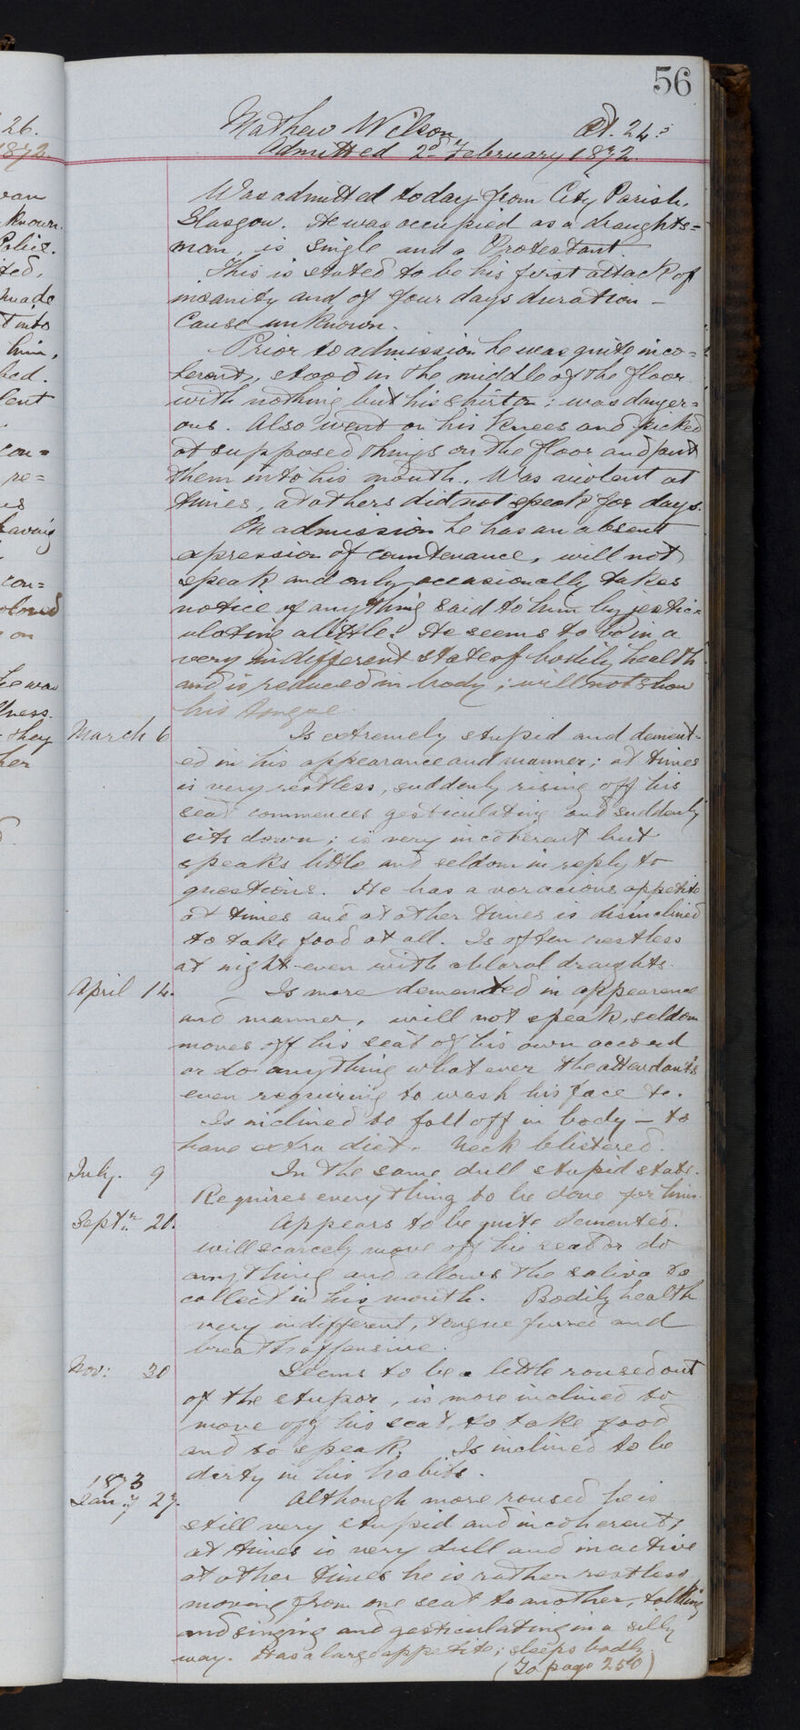 56
Mathew Wilson Æt. 24
Admitted 2nd February 1872.
Was admitted today from City Parish,
Glasgow. He was occupied as a draughts=
man, is single and a Protestant.
This is stated to be his first attack of
insanity and of four days duration –
Cause unknown.
Prior to admission he was quite inco=
herent, stood in the middle of the floor
with nothing but his shirt on; was danger=
ous. Also went on his knees and picked
at supposed things on the floor and put
them into his mouth. Was violent at
times, at others did not speak for days.
On admission he has an absent
expression of countenance, will not
speak and only occasionally takes
notice of anything said to him by gestic=
ulating a little. He seems to be in a
very indifferent state of bodily health
and is reduced in body; will not show
his tongue.
March 6 Is extremely stupid and dement-
ed in his appearance and manner; at times
is very restless, suddenly rising off his
seat commences gesticulating and suddenly
sits down; is very incoherent but
speaks little and seldom in reply to
questions. He has a voracious appetite
at times and at other times is disinclined
to take food at all. Is often restless
at night even with chloral draughts.
April 14. Is more demented in appearance
and manner, will not speak, seldom
moves off his seat of his own accord
or do anything what ever the attendants
even requiring to wash his face &c.
Is inclined to fall off in body – to
have extra diet. Neck blistered.
July. 9 In the same dull stupid state.
Requires every thing to be done for him.
Septr. 21. Appears to be quite demented.
will scarcely move off his seat or do
anything and allows the saliva to
collect in his mouth. Bodily health
very indifferent, tongue furred and
breath offensive.
Nov: 30 Seems to be a little roused out
of the stupor, is more inclined to
move off his seat, to take food
and to speak. Is inclined to be
dirty in his habits.
1873
Jany 27. Although more roused he is
still very stupid and incoherent,
at times is very dull and inactive
at other times he is rather restless
moving from one seat to another, talking
and singing and gesticulating in a silly
way. Has a large appetite; sleeps badly.
(To page 250)